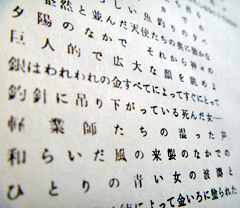 しい魚釣りのすべ
整然と並んだ天使たちの奥に微かな
夕陽のなかで それから神々の
巨人的で広大な顔を眺めよ
銀はわれわれの金すべてによってすぐにとって
釣針に吊り下がっている死んだ女――
軽業師たちの湿った声
和らいだ風の来襲のなかでの
ひとりの青い女の波瀾と
によって金いろに塗られた